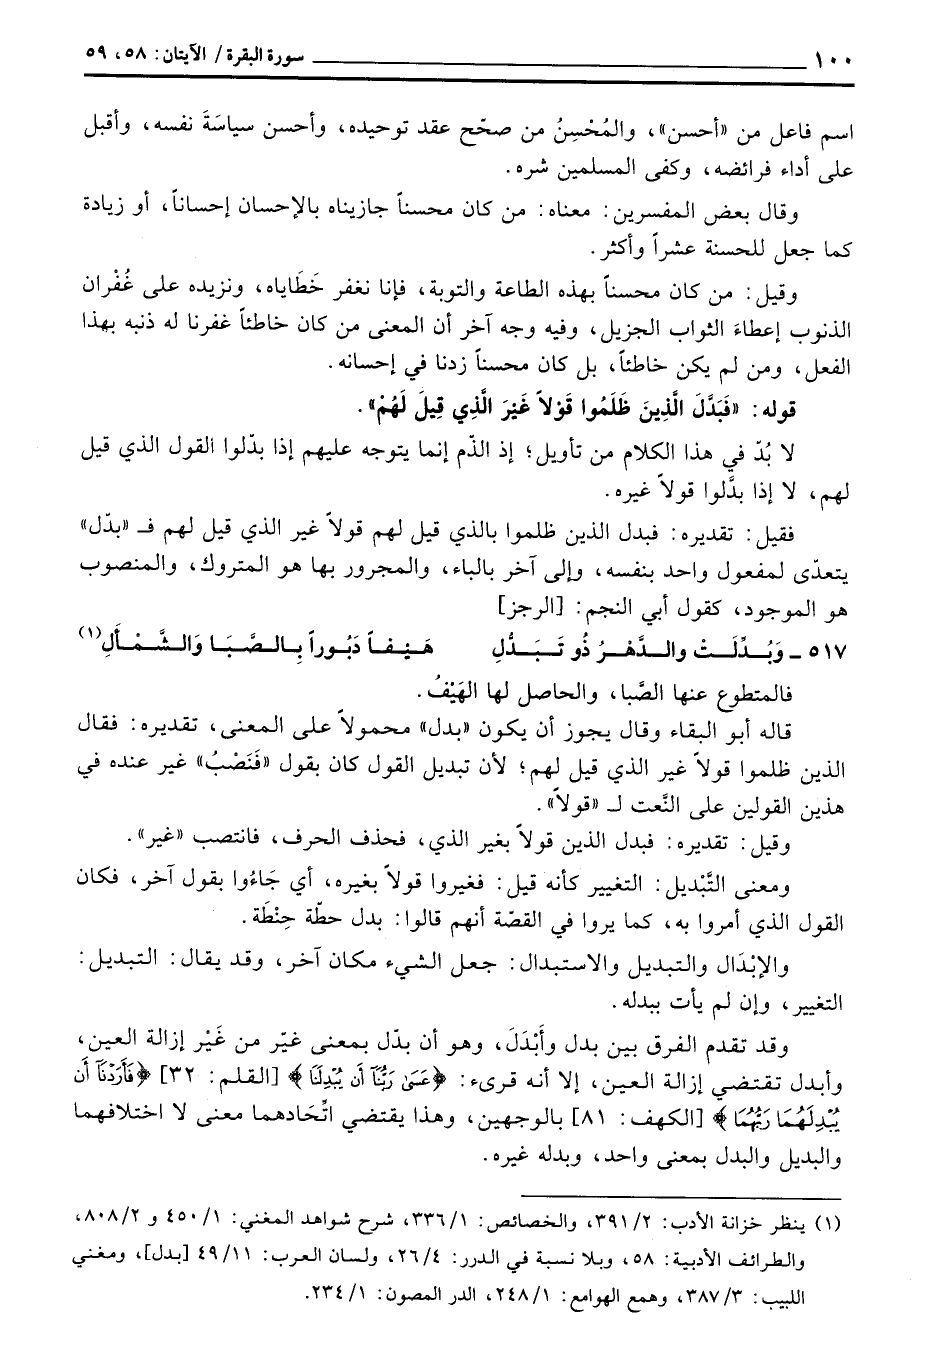 ١٠٠ سورة البقرة / الآيتان: ٥٨، ٥٩
اسم فاعل من «أحسن»، والمُحْسِنُ من صحّح عقد توحيده، وأحسن سياسَةَ نفسه، وأقبل
على أداء فرائضه، وكفى المسلمين شره.
وقال بعض المفسرين: معناه: من كان محسناً جازيناه بالإحسان إحساناً، أو زيادة
كما جعل للحسنة عشراً وأكثر.
وقيل: من كان محسناً بهذه الطاعة والتوبة، فإنا نغفر خَطَاياه، ونزيده على غُفْران
الذنوب إعطاءَ الثواب الجزيل، وفيه وجه آخر أن المعنى من كان خاطئاً غفرنا له ذنبه بهذا
الفعل، ومن لم يكن خاطئاً، بل كان محسناً زدنا في إحسانه.
قوله: «فَبَدَّلَ الَّذِينَ ظَلَمُوا قَوْلاً غَيْرَ الَّذِي قِيلَ لَهُمْ».
لا بُدّ في هذا الكلام من تأويل؛ إذ الذّم إنما يتوجه عليهم إذا بدّلوا القول الذي قيل
لهم، لا إذا بدَّلوا قولاً غيره.
فقيل: تقديره: فبدل الذين ظلموا بالذي قيل لهم قولاً غير الذي قيل لهم فـ «بدّل»
يتعدّى لمفعول واحد بنفسه، وإلى آخر بالباء، والمجرور بها هو المتروك، والمنصوب
هو الموجود، كقول أبي النجم: [الرجز]
٥١٧ ـ وَبُدِّلَتْ والدَّهْرُ ذُو تَبَدُّلِ هَيْفاً دَبُوراً بِالصَّبَا وَالشَّمْأَلِ(١)
فالمتطوع عنها الصَّبا، والحاصل لها الهَيْفُ.
قاله أبو البقاء وقال يجوز أن يكون «بدل» محمولاً على المعنى، تقديره: فقال
الذين ظلموا قولاً غير الذي قيل لهم؛ لأن تبديل القول كان بقول «فَنَصْبُ» غير عنده في
هذين القولين على النَّعت لـ «قولاً».
وقيل: تقديره: فبدل الذين قولاً بغير الذي، فحذف الحرف، فانتصب «غير».
ومعنى التَّبْديل: التغيير كأنه قيل: فغيروا قولاً بغيره، أي جَاءُوا بقول آخر، فكان
القول الذي أمروا به، كما يروا في القصّة أنهم قالوا: بدل حطّة حِنْطَة.
والإبْدَال والتبديل والاستبدال: جعل الشيء مكان آخر، وقد يقال: التبديل:
التغيير، وإن لم يأت ببدله.
وقد تقدم الفرق بين بدل وأَبْدَلَ، وهو أن بدّل بمعنى غيّر من غَيْر إزالة العين،
وأبدل تقتضي إزالة العين، إلا أنه قرىء: ﴿عَسَىٰ رَبُّنَآ أَن يُبْدِلَنَا﴾ [القلم: ٣٢] ﴿فَأَرَدْنَآ أَن
يُبْدِلَهُمَا رَبُّهُمَا﴾ [الكهف: ٨١] بالوجهين، وهذا يقتضي اتّحادهما معنى لا اختلافهما
والبديل والبدل بمعنى واحد، وبدله غيره.
(١) ينظر خزانة الأدب: ٣٩١/٢، والخصائص: ٣٣٦/١، شرح شواهد المغني: ٤٥٠/١ و ٨٠٨/٢،
والطرائف الأدبية: ٥٨، وبلا نسبة في الدرر: ٢٦/٤، ولسان العرب: ٤٩/١١ [بدل]، ومغني
اللبيب: ٣٨٧/٣، وهمع الهوامع: ٢٤٨/١، الدر المصون: ٢٣٤/١.